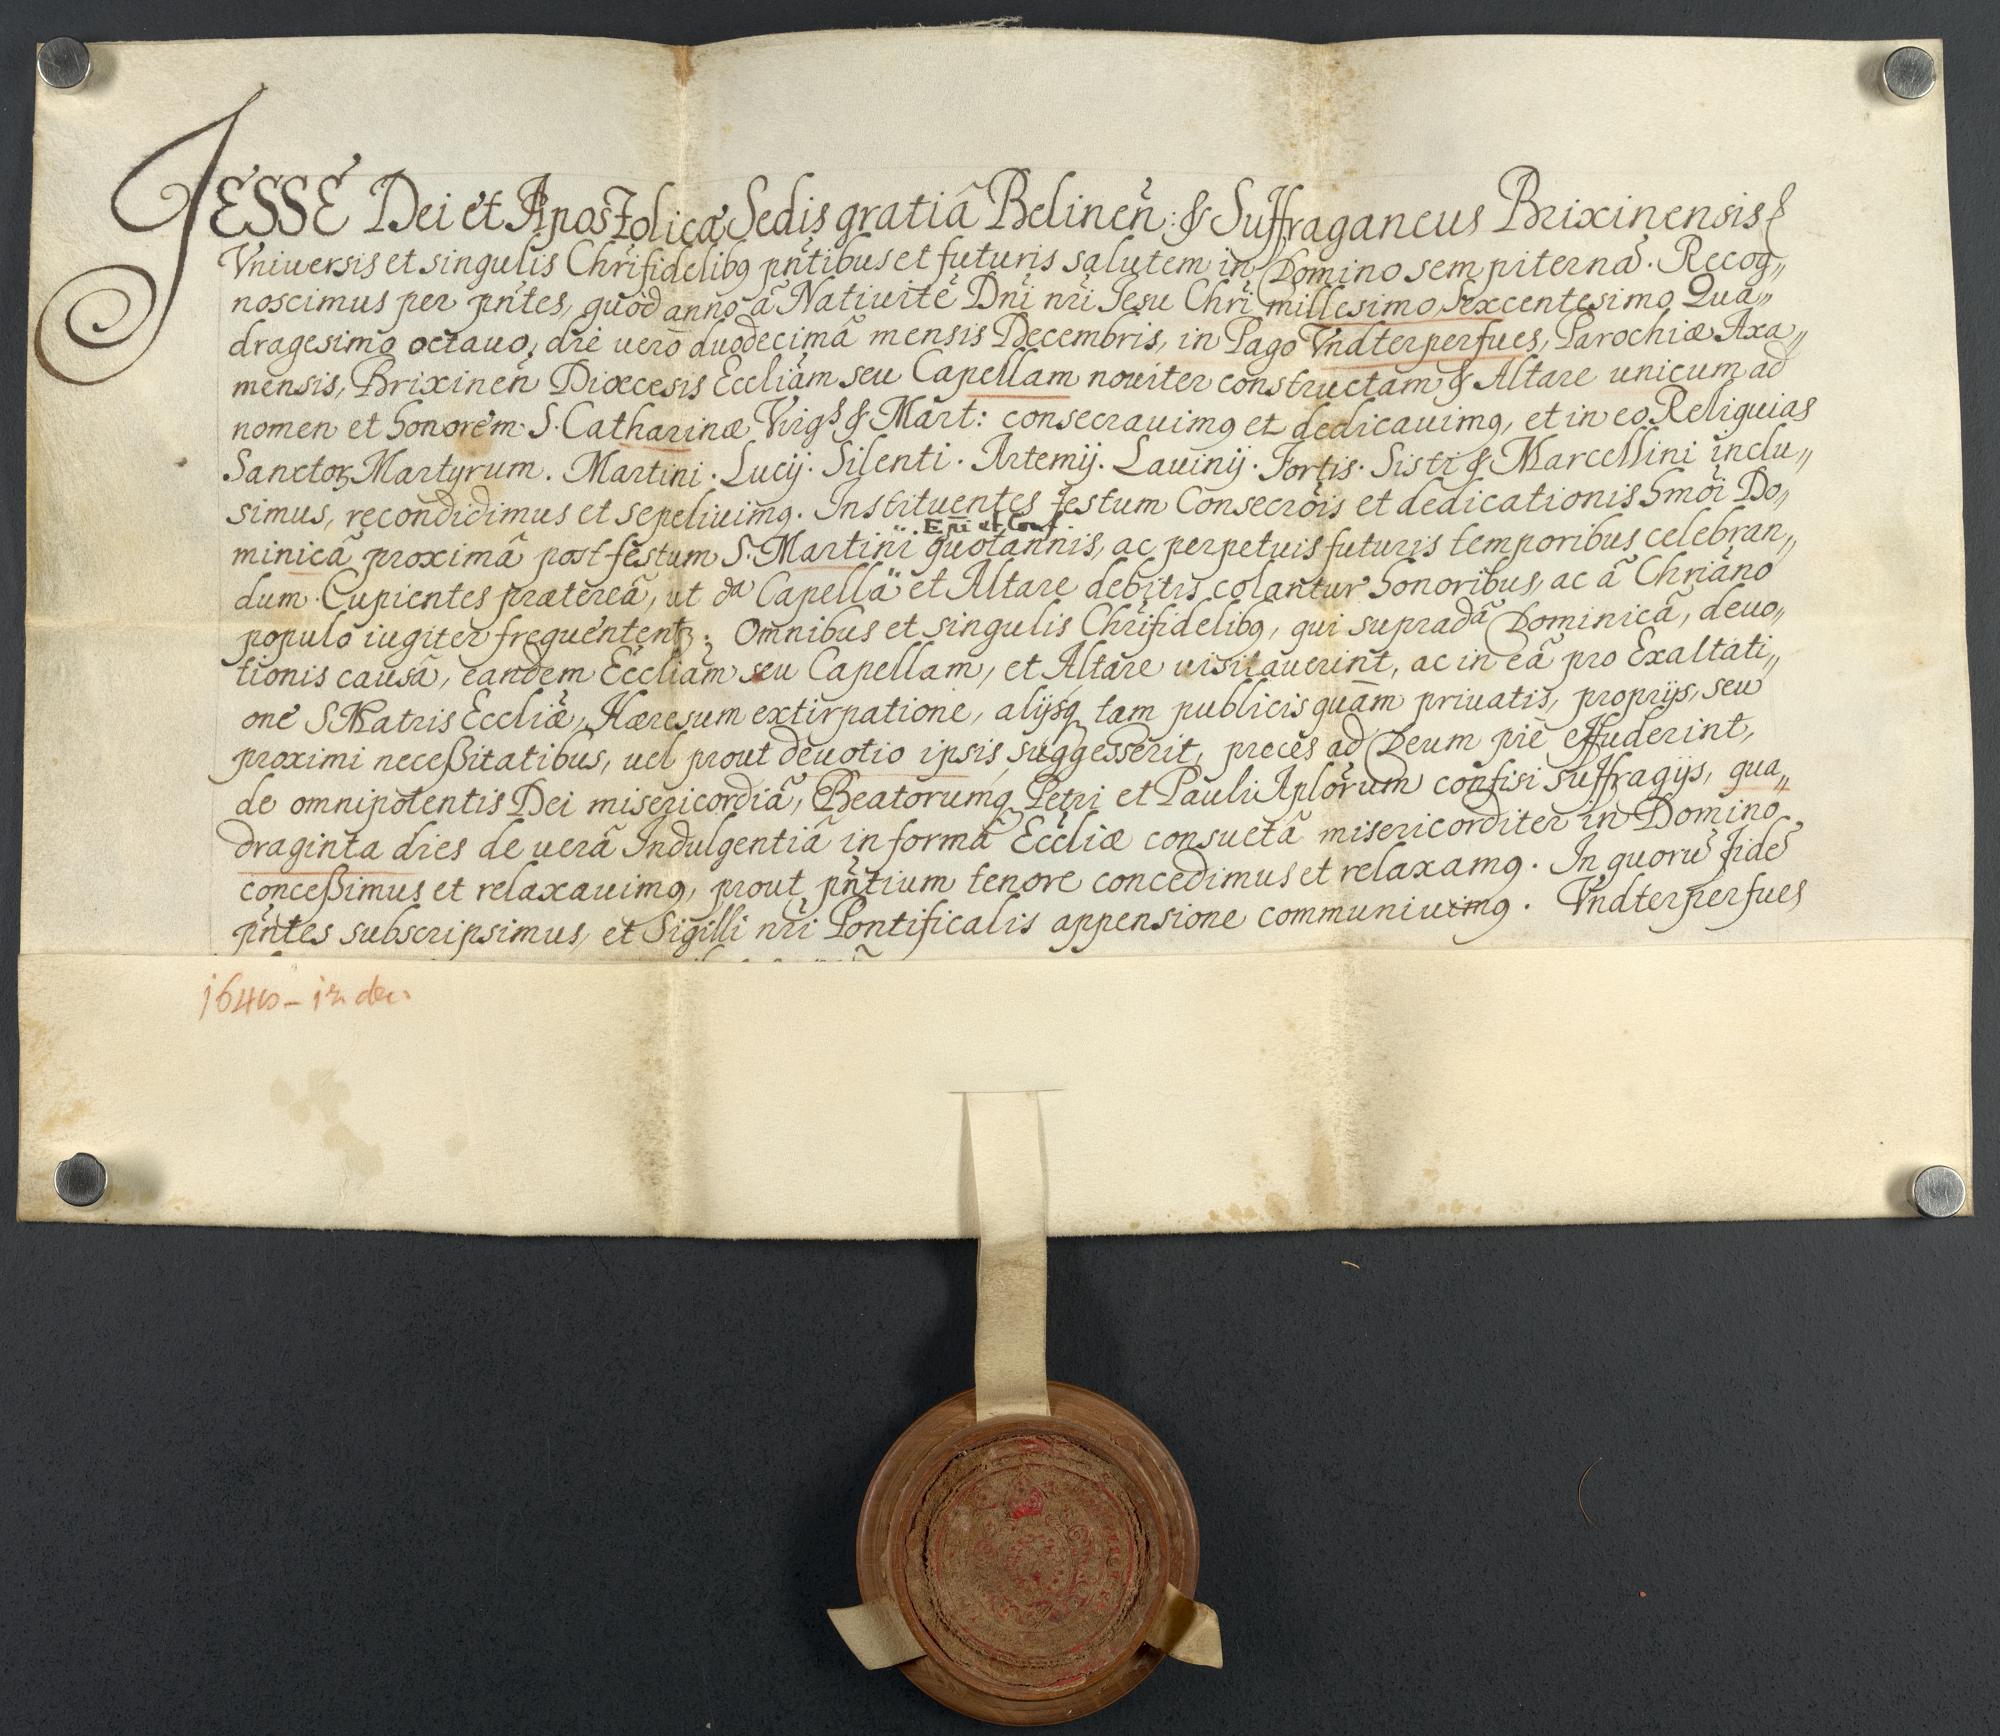 JESSE Dei et Apostolicæ Sedis gratiâ Belineñ: & Suffraganeus Brixinensis
Vniuersis et singulis Chrifidelibꝯ pñtibus et futuris salutem in Domino sempiternã. Recog„
noscimus per pñtes, quòd anno à Natiuitẽ Dñi nr̃i Iesu Chr̃i millesimo Sexcentesimo Qua„
dragesimo octauo, die uerò duodecimâ mensis Decembris, in Pago Vndterperfues, Parochiæ Axa„
mensis, Brixineñ Diœcesis Eccliam seu Capellam nouiter constructam & Altare unicum ad
nomen et honorem S. Catharinæ Virgs & Mart: consecrauimꝯ et dedicauimꝯ, et in eo Reliquias
Sanctoꝝ Martyrum. Martini. Lucij. Silenti. Artemij. Lauinij. Fortis. Sisti & Marcellini inclu„
simus, recondidimus et sepeliuimꝯ. Instituentes festum Consecr̃ois et dedicationis hmõi Do„
Epi et Conf.
minicâ proximâ post festum S. Martini quotannis, ac perpetuis futuris temporibus celebran„
dum. Cupientes prætereà, ut da Capella et Altare debitis colantur honoribus, ac à Chriãno
populo iugiter frequentent̃; Omnibus et singulis Chrifidelibꝯ, qui supradâ Dominicâ, deuo„
tionis causâ, eandem Eccliam seu Capellam, et Altare uisitauerint, ac in eâ pro Exaltati„
one S Matris Eccliæ, Hæresum extirpatione, alijsꝗ tam publicis quàm priuatis, proprijs, seu
proximi neceßitatibus, uel prout deuotio ipsis suggesserit, preces ad Deum piè effuderint,
de omnipotentis Dei misericordiâ, Beatorumꝗ Petri et Pauli Aplorum confisi suffragijs, qua„
draginta dies de uerâ Indulgentiâ in formâ Eccliæ consuetâ misericorditer in Domino
conceßimus et relaxauimꝯ, prout pñtium tenore concedimus et relaxamꝯ. In quorũ fidẽ
pñtes subscripsimus, et Sigilli nr̃i Pontificalis appensione communiuimꝯ. Vndterperfues
1648 - 12 dec.